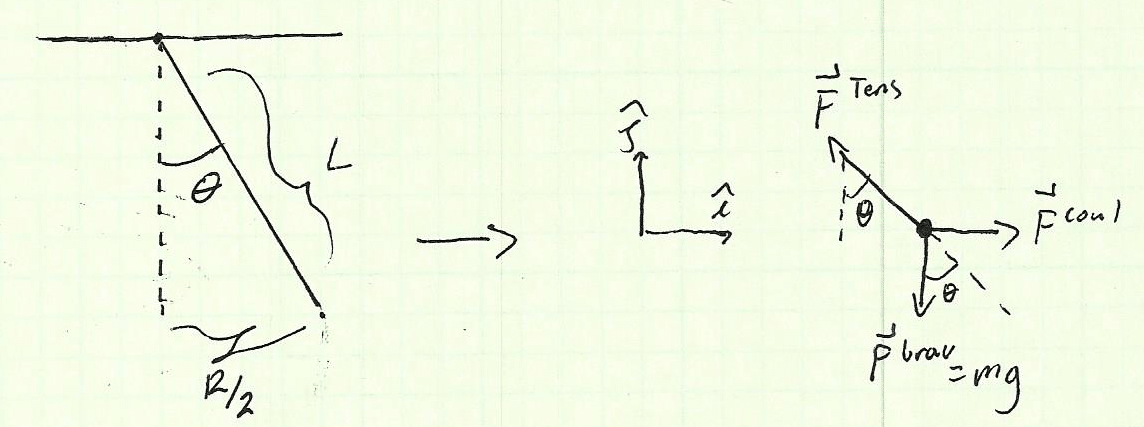 θ
L
R/2
ĵ
î
F⃗ Tens
θ
F⃗ coul
θ
F⃗ Grav = mg